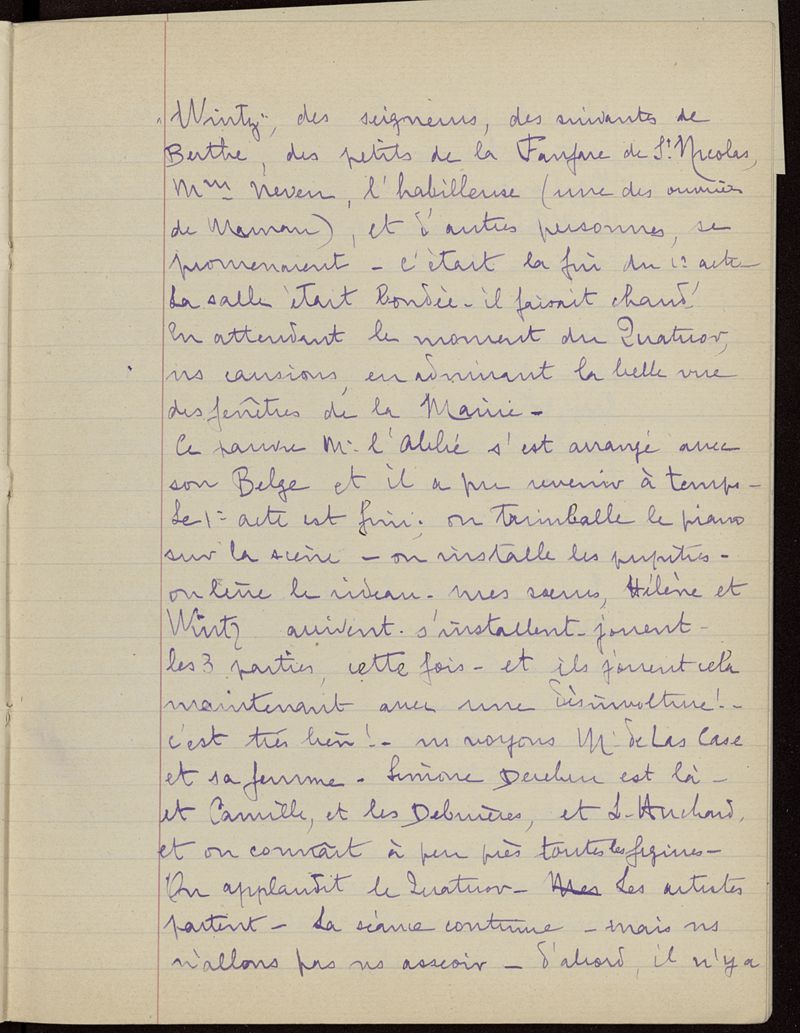 "Wintz", des seigneurs, des suivantes de
Berthe, des petits de la Fanfare de St Nicolas,
Mme Neveu, l'habilleuse (une des ouvrières
de Maman), et d'autres personnes, se
promenaient - c'était la fin du 1er acte
La salle était bondée - il faisait chaud!
En attendant le moment du Quatuor,
ns causions, en admirant la belle vue
des fenêtres de la Mairie -
Ce pauvre Mr l'Abbé s'est arrangé avec
son Belge et il a pu revenir à temps -
Le 1er acte est fini; on trimballe le piano
sur la scène - on installe les pupitres -
on lève le rideau - mes sœurs, Hélène et
Wintz arrivent - s'installent - jouent -
les 3 parties, cette fois - et ils jouent cela
maintenant avec une désinvolture! -
c'est très bien! - ns voyons Mr de Las Case
et sa femme - Simone est là -
et Camille, et les Debrières, et L. Huchard,
et on connaît à peu près toutes les figures -
On applaudit le Quatuor - Mes Les artistes
partent - La séance continue - mais ns
n'allons pas ns asseoir - d'abord, il n'y a